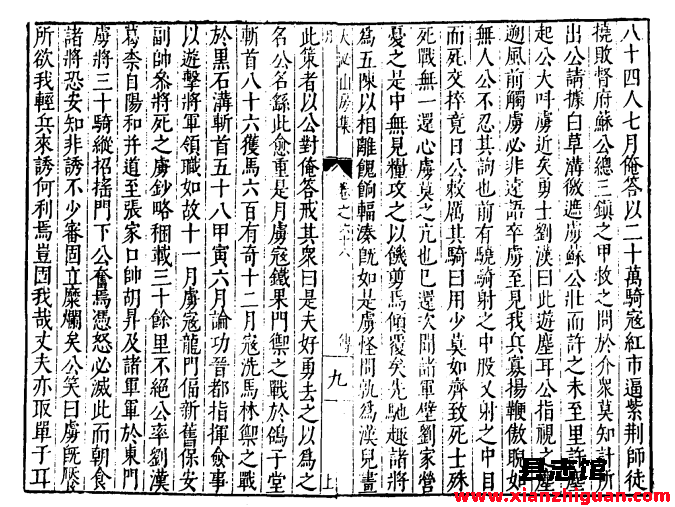 八十四人七月俺答以二十萬騎寇紅市逼紫荆師徒
撓敗督府蘇公總三鎮之甲救之問於介衆莫知計所
出公請據白草溝微遮虜蘇公壯而許之未至里許塵
起公大呼虜近矣勇士劉漢曰此遊塵耳公指視之塵
迎風前觸虜必非遠語卒虜至見我兵寡揚鞭傲睨如
無人公不忍其訽也前有驍騎射之中股又射之中目
而死交捽竟日公救厲其騎曰用少莫如齊致死士殊
死戰無一還心虜莫之亢也已還次間諸軍壁劉家營
憂之是中無見糧攻之以饑剪焉傾覆矣先馳趣諸將
為五陳以相離餽餉輻湊旣如是虜怪問孰為漢兒畫
大泌山房集
卷之六十六
傳
九
上
此策者以公對俺答戒其衆曰是夫好勇去之以為之
名公名繇此愈重是月虜寇鐵果門禦之戰於鴿子堂
斬首八十六獲馬六百有奇十二月寇洗馬林禦之戰
於黒石溝斬首五十八甲寅六月論功晉都指揮僉事
以遊擊將軍領職如故十一月虜寇龍門偪新舊保安
副帥叅將死之虜鈔略稛載三十餘里不絕公率劉漢
葛柰自陽和并道至張家口帥胡昇及諸軍軍於東門
虜將三十騎縱招搖門下公奮焉憑怒必滅此而朝食
諸將恐安知非誘不少審固立糜爛矣公笑曰虜旣厭
所欲我輕兵來誘何利焉豈固我哉丈夫亦取單于耳
县志馆
www.xianzhiguan.com